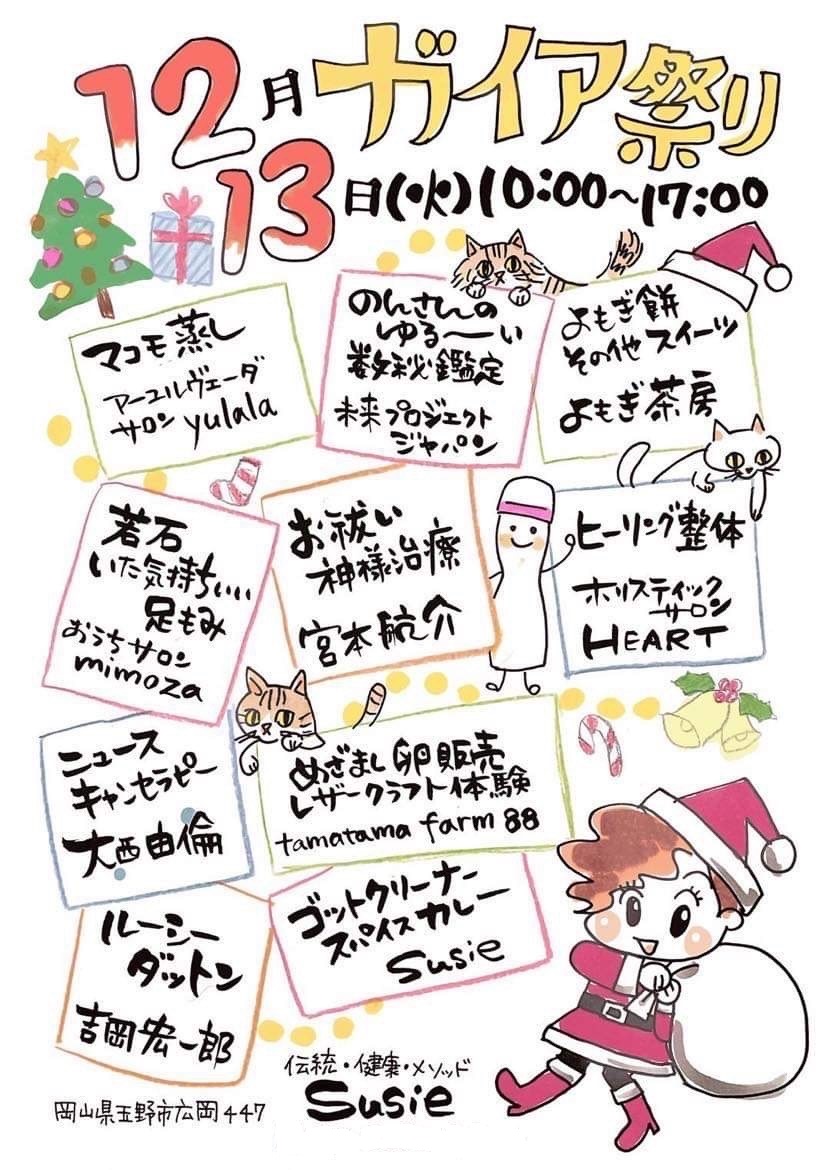 12月 ガイア祭り
13日(火)10:00〜17:00
マコモ蒸し
アーユルヴェーダ
サロン yulala
のんさんの
ゆる〜い
数秘鑑定
未来プロジェクト
ジャパン
よもぎ餅
その他スイーツ
よもぎ茶房
若石
いた気持ちいい
足もみ
おうちサロン
mimoza
お祓い
神様治療
宮本航介
ヒーリング整体
ホリスティック
サロン
HEART
ニュース
キャンセラピー
大西由倫
めざまし卵販売
レザークラフト体験
tamatama farm 88
ルーシー
ダットン
吉岡宏一郎
ゴットクリーナー
スパイスカレー
Susie
伝統・健康・メソッド
Susie
岡山県玉野市広岡447